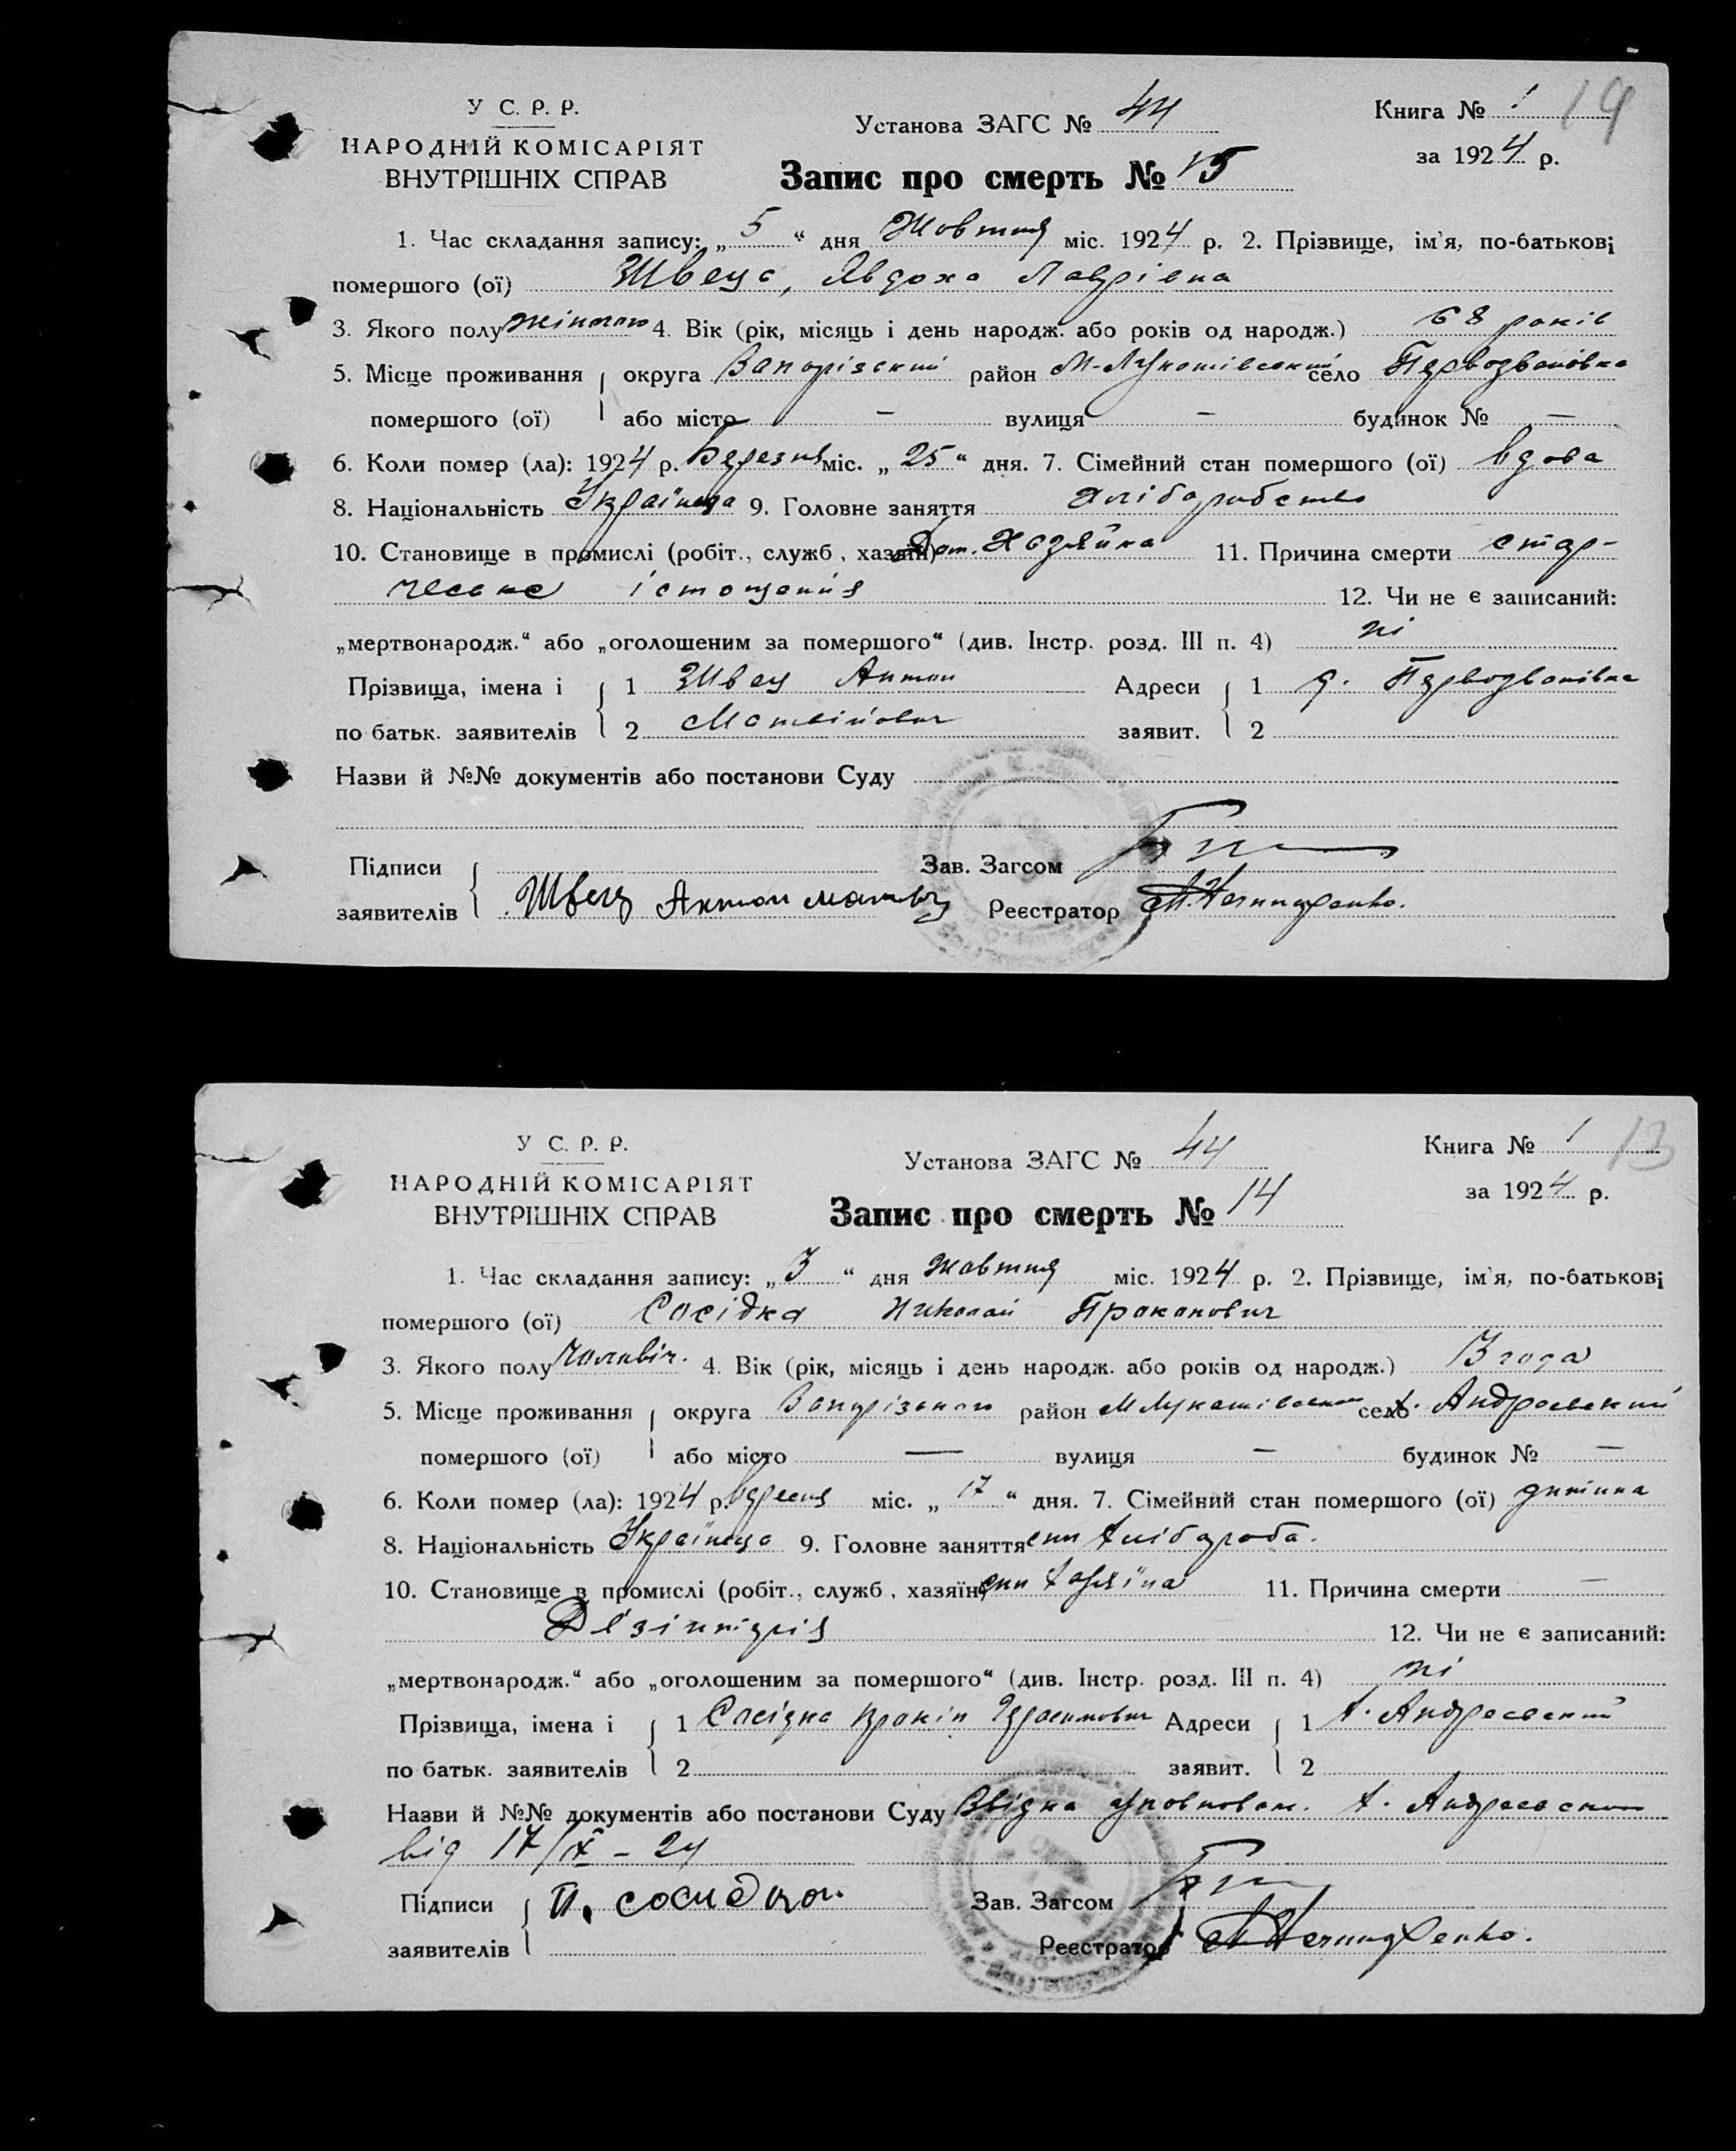 У С. Р. Р.
НАРОДНІЙ КОМІСАРІЯТ
ВНУТРІШНІХ СПРАВ
Установа ЗАГС № 44
Запис про смерть № 15
Книга № 1 14
за 1924 р.
1. Час складання запису: „5“ дня Жовтня міс. 1924 р. 2. Прізвище, ім'я, по-батькові
помершого (ої) Швець, Явдоха Лаврівна
3. Якого полу жіночого 4. Вік (рік, місяць і день народж. або років од народж.) 68 років
5. Місце проживання округа Запорізский район М-Лукашівський село Первозвановка
помершого (ої) або місто — вулиця — будинок № —
6. Коли помер (ла): 1924 р. Березня міс. „25“ дня. 7. Сімейний стан помершого (ої) вдова
8. Національність Українка 9. Головне заняття хліборобство
10. Становище в промислі (робіт., служб, хазяїн) Хозяйка 11. Причина смерти стар-
ческе істощенія 12. Чи не є записаний:
„мертвонародж.“ або „оголошеним за помершого“ (див. Інстр. розд. III п. 4) ні
Прізвища, імена і 1 Швец Антон Адреси 1 д. Первозванівка
по батьк. заявителів 2 Матвійович заявит. 2
Назви й №№ документів або постанови Суду
Підписи Зав. Загсом
заявителів Швец Антон Матвь Реєстратор
У С. Р. Р.
НАРОДНІЙ КОМІСАРІЯТ
ВНУТРІШНІХ СПРАВ
Установа ЗАГС № 44
Запис про смерть № 14
Книга № 1 13
за 1924 р.
1. Час складання запису: „3“ дня жовтня міс. 1924 р. 2. Прізвище, ім'я, по-батькові
помершого (ої) Сосідка Николай Прокопович
3. Якого полу чоловіч. 4. Вік (рік, місяць і день народж. або років од народж.) 3 года
5. Місце проживання округа Запорізького район МЛукашівського село х. Андреевский
помершого (ої) або місто — вулиця — будинок № —
6. Коли помер (ла): 1924 р. вересня міс. „17“ дня. 7. Сімейний стан помершого (ої) дитина
8. Національність Українец 9. Головне заняття син хлібороба.
10. Становище в промислі (робіт., служб, хазяїн) син хазяїна 11. Причина смерти —
Дізінтерія 12. Чи не є записаний:
„мертвонародж.“ або „оголошеним за помершого“ (див. Інстр. розд. III п. 4) ні
Прізвища, імена і 1 Сосідка Прокіп Герасимович Адреси 1 х. Андреевский
по батьк. заявителів 2 заявит. 2
Назви й №№ документів або постанови Суду Звідка уповноваж. х. Андреевского
від 17/IX – 24
Підписи П. сосидка. Зав. Загсом
заявителів Реєстратор